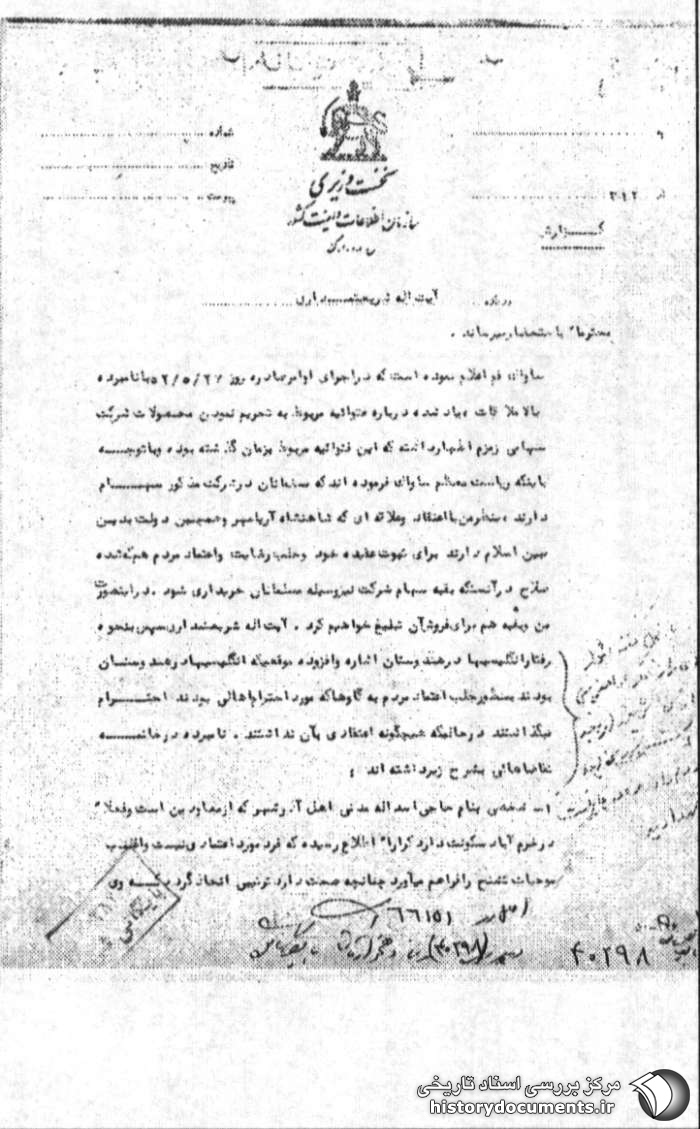 شماره
تاریخ
پیوست
نخست وزیری
سازمان اطلاعات و امنیت کشور
س.ا.و.ا.ک
۳۱۲
گزارش
درباره آیت اله شریعتمداری
محترما" باستحضار میرساند .
ساواک قم اعلام نموده است که در اجرای اوامر صادره روز ۵۲/۵/۲۷ با نامبرده
بالا ملاقات و یاد شده درباره فتوائیه مربوط به تحریم نمودن محصولات شرکت
سهامی زمزم اظهار داشته که این فتوائیه مربوط بزمان گذشته بوده و با توجه
باینکه ریاست معظم ساواک فرموده اند که مسلمانان در شرکت مذکور سهام
دارند بنظر من با اعتقاد و علاقه ای که شاهنشاه آریامهر و همچنین دولت بدین
مبین اسلام دارند برای ثبوت عقیده خود و جلب رضایت و اعتماد مردم هم که شده
صلاح در آنستکه بقیه سهام شرکت نیز وسیله مسلمانان خریداری شود . در اینصورت
من و بقیه هم برای فروش آن تبلیغ خواهیم کرد . آیت اله شریعتمداری سپس بنحوه
رفتار انگلیسیها در هندوستان اشاره و افزوده موقعیکه انگلیسیها در هندوستان
بودند بمنظور جلب اعتماد مردم به گاوها که مورد احترام اهالی بودند احترام
میگذاشتند در حالیکه هیچگونه اعتقادی بآن نداشتند . نامبرده در خاتمه
تقاضاهائی بشرح زیر داشته اند :
۱ـ شخصی بنام حاجی اسداله مدنی اهل آذرشهر که از معاودین است و فعلا"
در خرم آباد سکونت دارد کرارا" اطلاع رسیده که فرد مورد اعتمادی نیست و اغلب
موجبات تشنج را فراهم میآورد چنانچه صحت دارد ترتیبی اتخاذ گردد که وی
اصل در ۶۶۱۵۱
(۴۰۲۹۸)
۴۰۲۹۸
بایگانی
مرکز بررسی اسناد تاریخی
historydocuments.ir